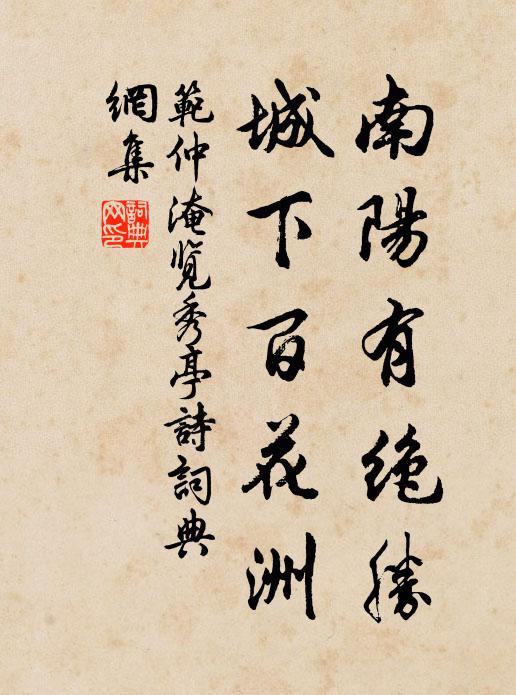 南陽有絶勝
城下百花洲
範仲淹览秀亭詩詞典
網集
詞典
网印